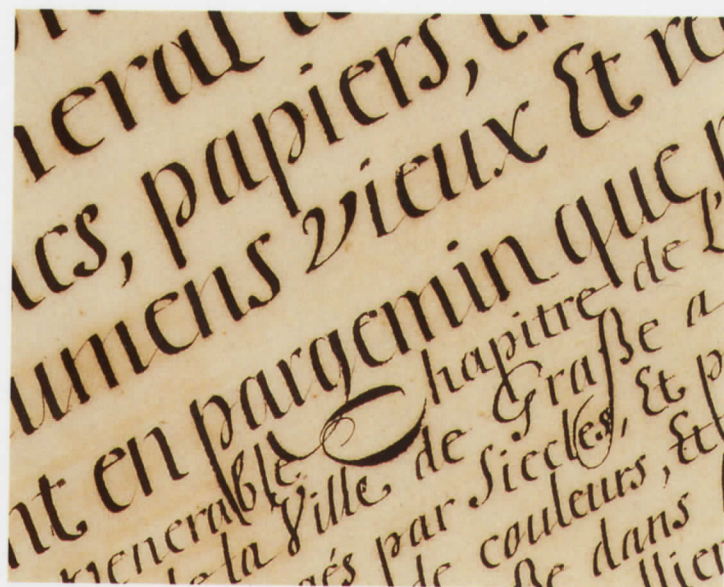 neral
papiers,
umens vieux Et
en pargemin que
venerable Chapitre de
de la Ville de Graße a
par Siecles, Et
de couleurs, Et
dans